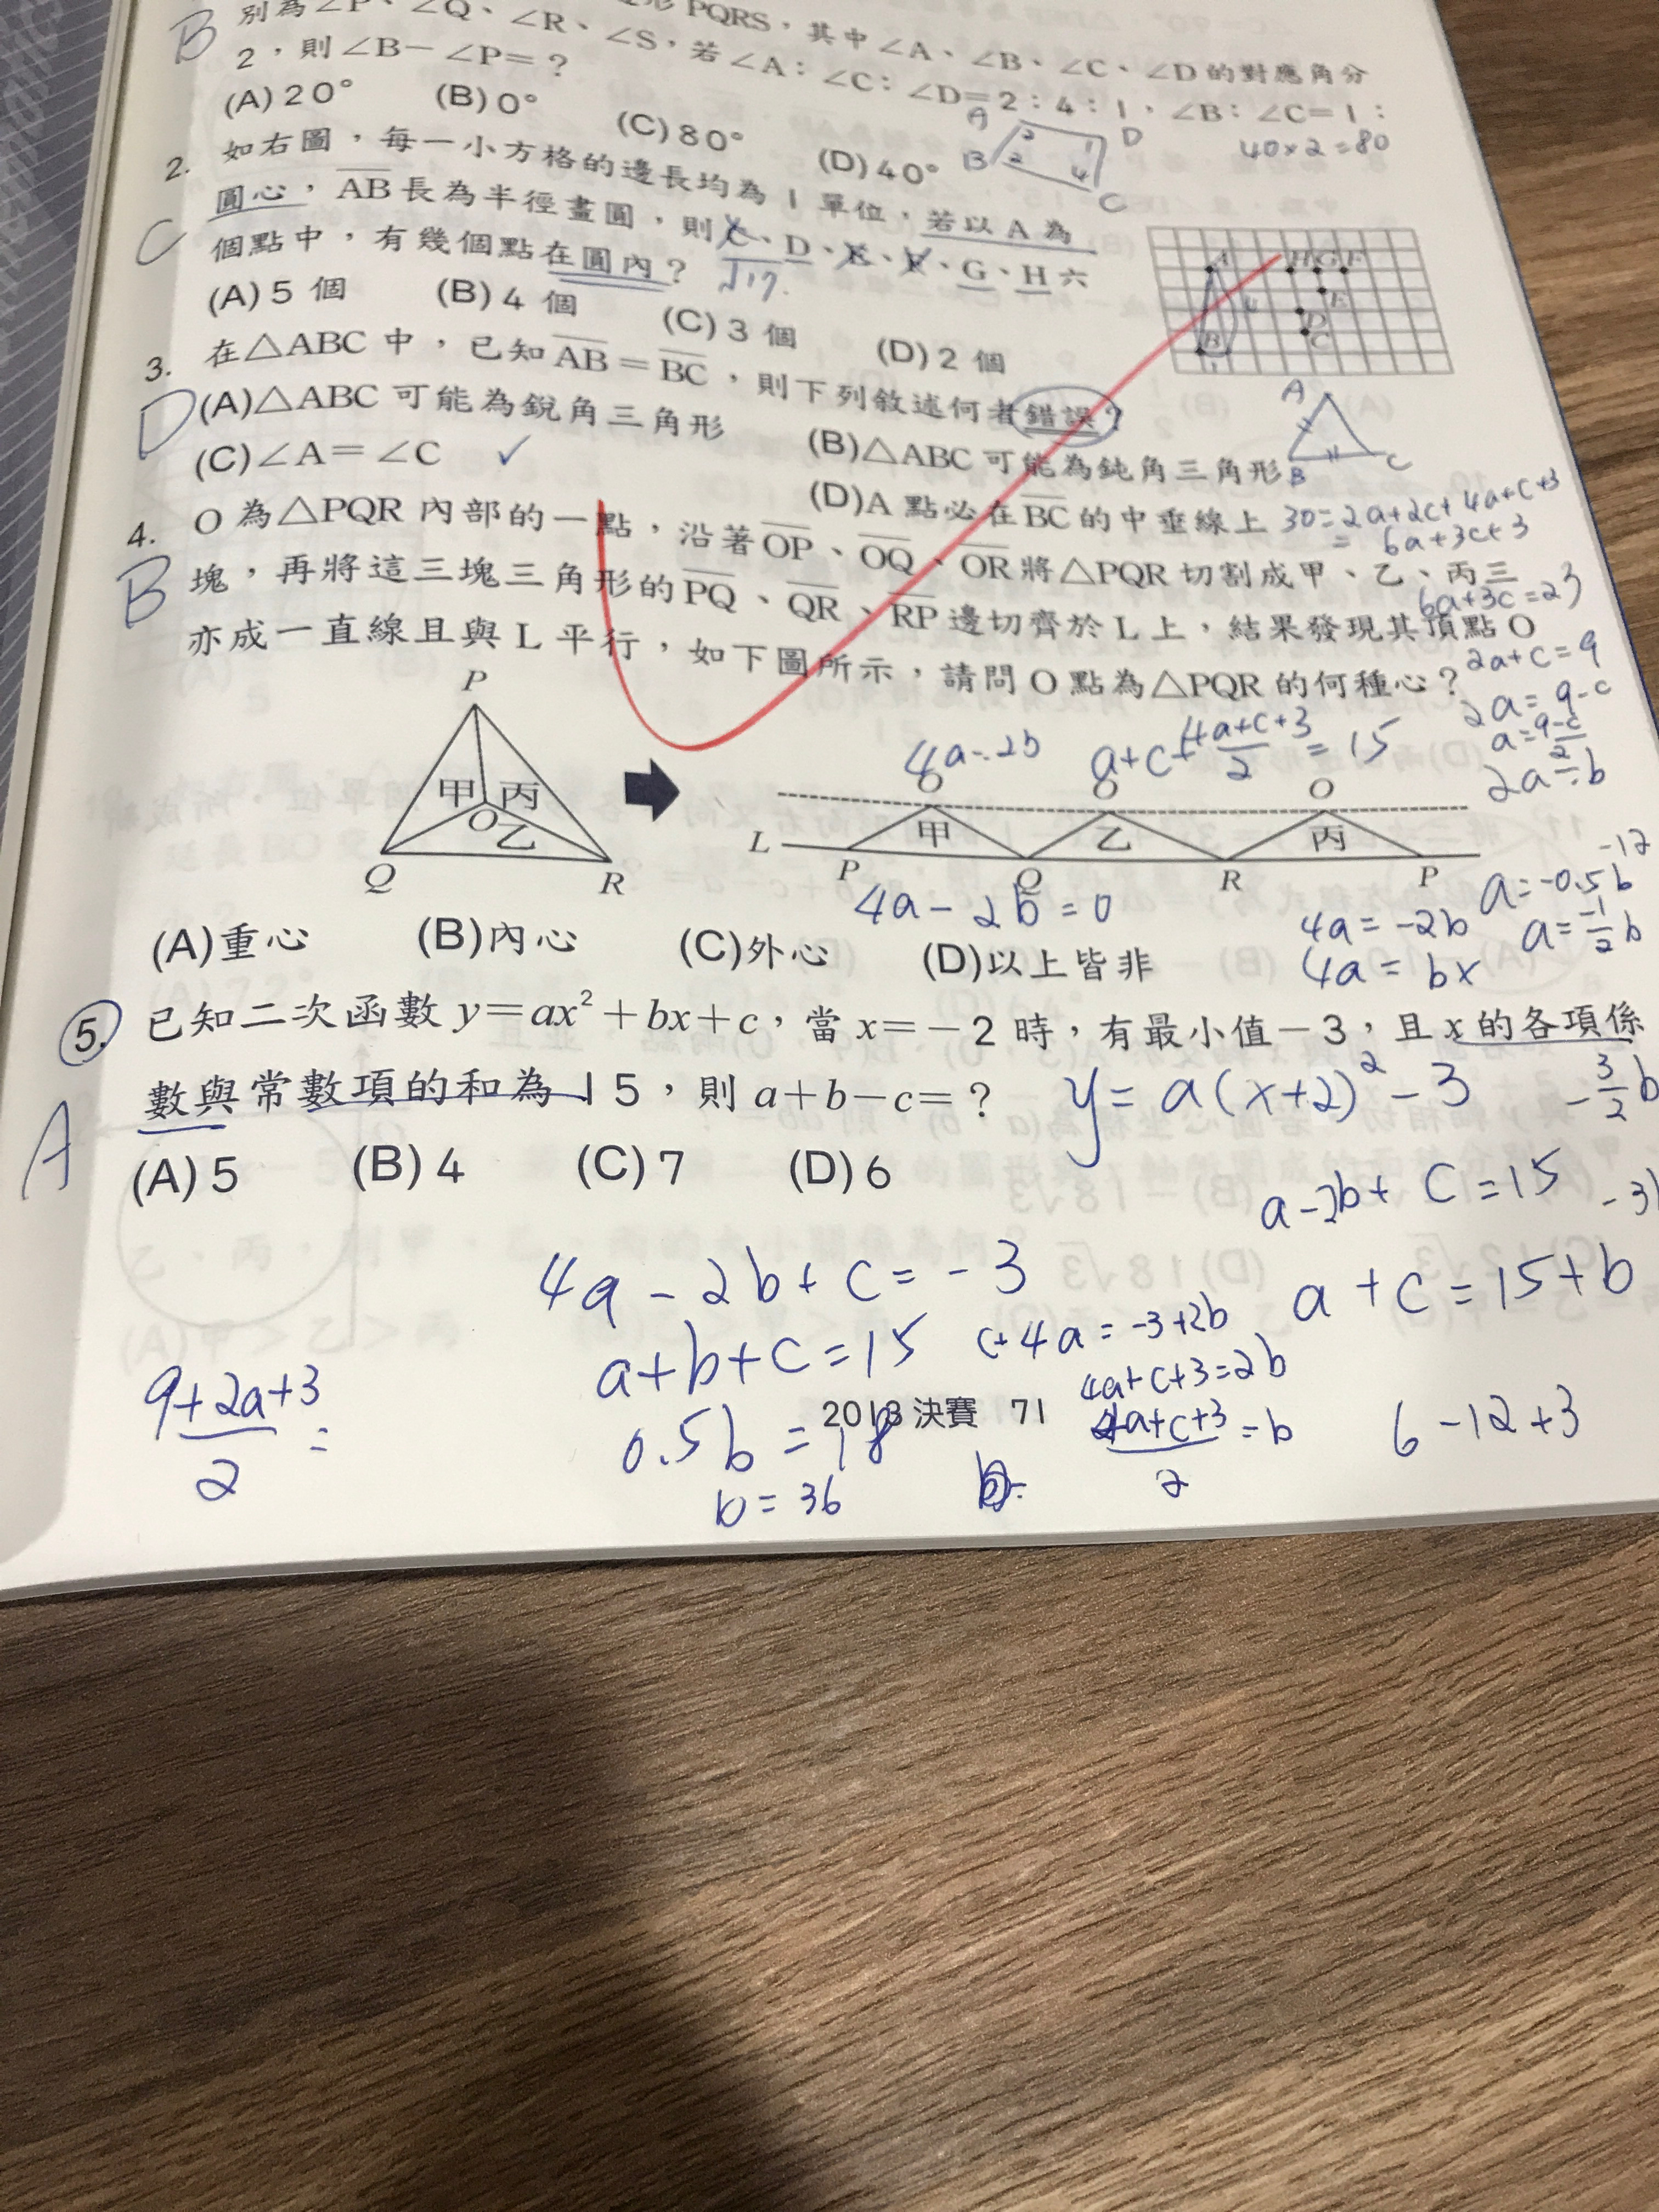 別為∠P、∠Q、∠R、∠S,若∠A:∠C:∠D=2:4:1,∠B:∠C=1:
PQRS,其中∠A、∠B、∠C、∠D的對應角分
B
2,則∠B-∠P=?
(A)20° (B)0° (C)80° (D)40°
A D B C 2 2 1 4
40×2=80
2. 如右圖,每一小方格的邊長均為1單位,若以A為
圓心,AB長為半徑畫圓,則C、D、E、F、G、H六
C
個點中,有幾個點在圓內?
√17
(A)5個 (B)4個 (C)3個 (D)2個
A H G F
E
D
B C
3. 在△ABC中,已知AB=BC,則下列敘述何者錯誤?
D
(A)△ABC可能為銳角三角形 (B)△ABC可能為鈍角三角形
(C)∠A=∠C ✓ (D)A點必在BC的中垂線上
A
B C
4. O為△PQR內部的一點,沿著OP、OQ、OR將△PQR切割成甲、乙、丙三
B
塊,再將這三塊三角形的PQ、QR、RP邊切齊於L上,結果發現其頂點O
亦成一直線且與L平行,如下圖所示,請問O點為△PQR的何種心?
30=2a+2c+4a+c+3
= 6a+3c+3
6a+3c=27
2a+c=9
2a=9-c
a=9-c/2
2a=b
4a-2b
a+c+4a+c+3/2=15
P
甲 丙
O 乙
Q R
O O O
L 甲 乙 丙
P Q R P
4a-2b=0
4a=-2b
4a=bx
a=-0.5b
-12
a=-1/2b
(A)重心 (B)內心 (C)外心 (D)以上皆非
5. 已知二次函數y=ax²+bx+c,當x=-2時,有最小值-3,且x的各項係
數與常數項的和為15,則a+b-c=?
A
y=a(x+2)²-3
-3/2b
(A)5 (B)4 (C)7 (D)6
a-2b+c=15
4a-2b+c=-3
a+c=15+b
a+b+c=15
c+4a=-3+2b
4a+c+3=2b
4a+c+3/2=b
9+2a+3/2=
0.5b=18
b=36
6-12+3
2013決賽 71